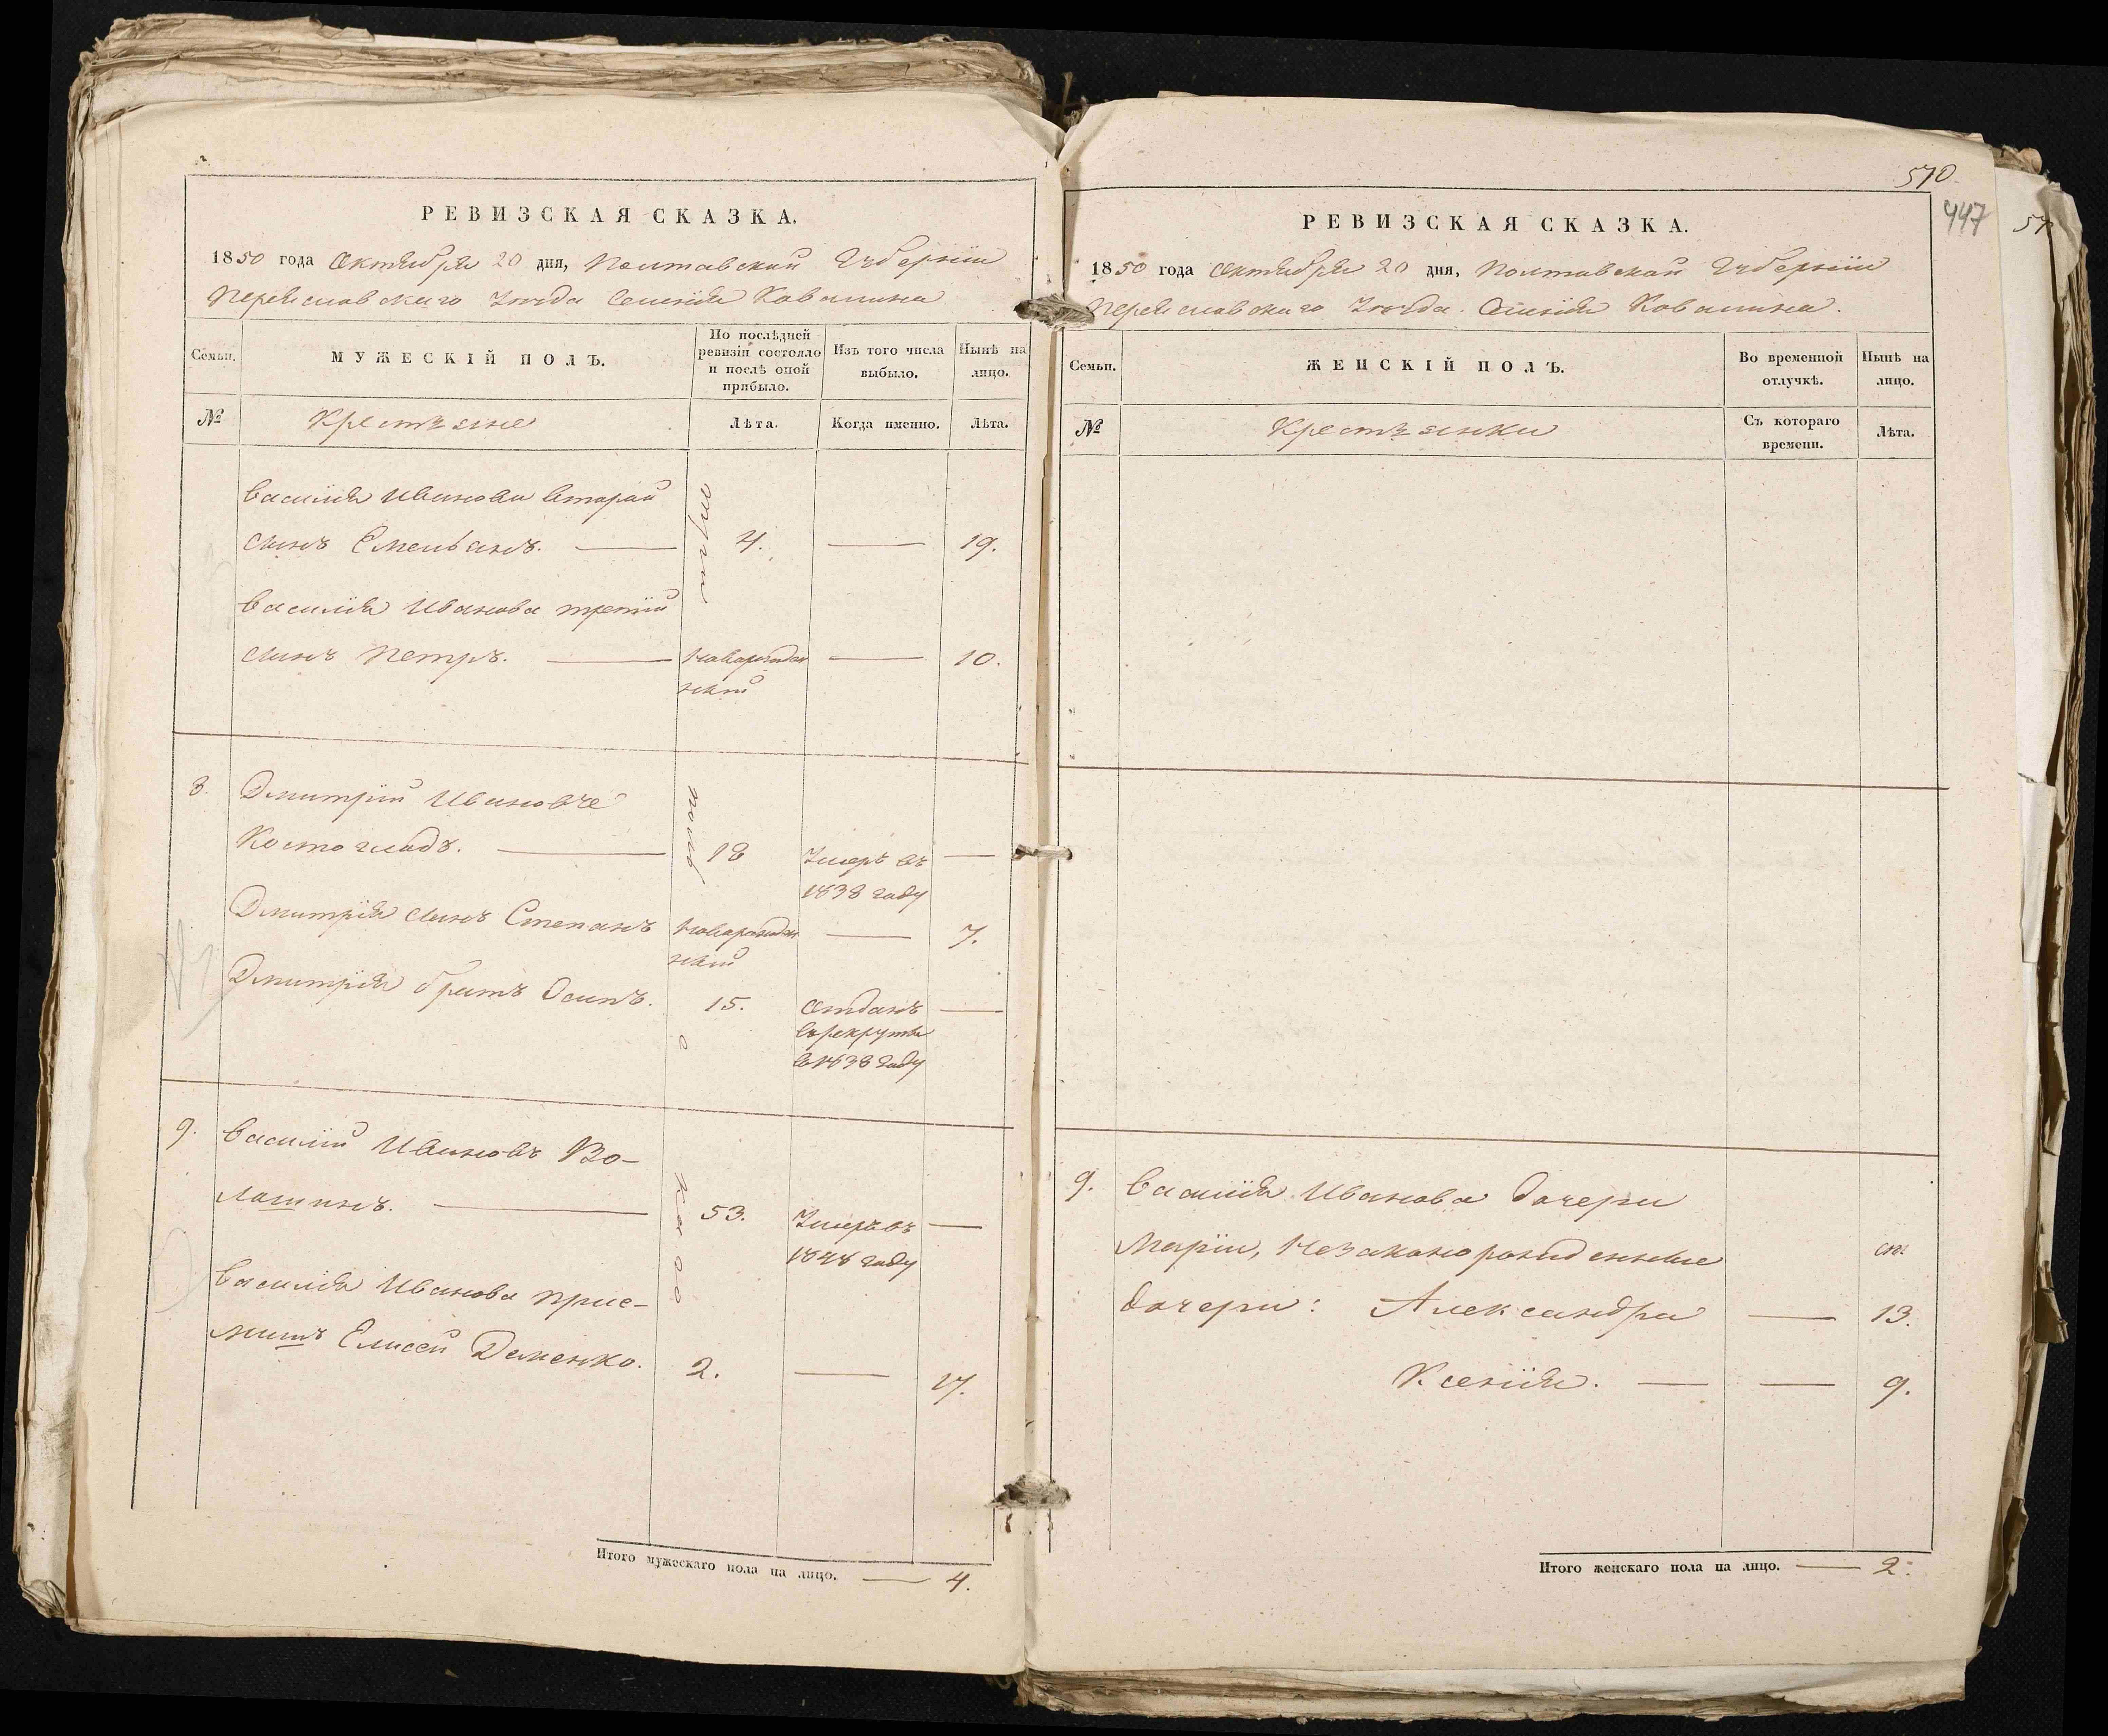 РЕВИЗСКАЯ СКАЗКА.
1850 года Октября 20 дня, Полтавской Губерніи
Переяславскаго Уѣзда Селенія Ковалина
Семьи.
МУЖЕСКІЙ ПОЛЪ.
По послѣдней
ревизіи состояло
и послѣ оной
прибыло.
Изъ того числа
выбыло.
Нынѣ на
лицо.
№
Крестьяне
Лѣта.
Когда именно.
Лѣта.
Василія Иванова второй
сынъ Емельянъ. — 4. — 19.
Василія Иванова третій
сынъ Петръ. — новорожден — 10.
ный
8. Дмитрій Ивановъ
Костогладъ. — 18 Умеръ въ —
1838 году
Дмитрія сынъ Степанъ новорожден — 7.
ный
Дмитрія братъ Осипъ. 15. отданъ —
въ рекруты
в 1838 году
9. Василій Ивановъ Во-
лошинъ. — 53. Умеръ въ —
1848 году
Василія Иванова прие-
мышъ Елисей Деменко. 2. — 17.
Итого мужескаго пола на лицо. — 4.
570.
447
57
РЕВИЗСКАЯ СКАЗКА.
1850 года Октября 20 дня, Полтавской Губерніи
Переяславскаго Уѣзда. Селенія Ковалина.
Семьи.
ЖЕНСКІЙ ПОЛЪ.
Во временной
отлучкѣ.
Нынѣ на
лицо.
№
Крестьянки
Съ котораго
времени.
Лѣта.
9. Василія Иванова дочери
Маріи, незаконорожденные
дочери: Александра — 13.
Ксенія. — — 9.
Итого женскаго пола на лицо. — 2.